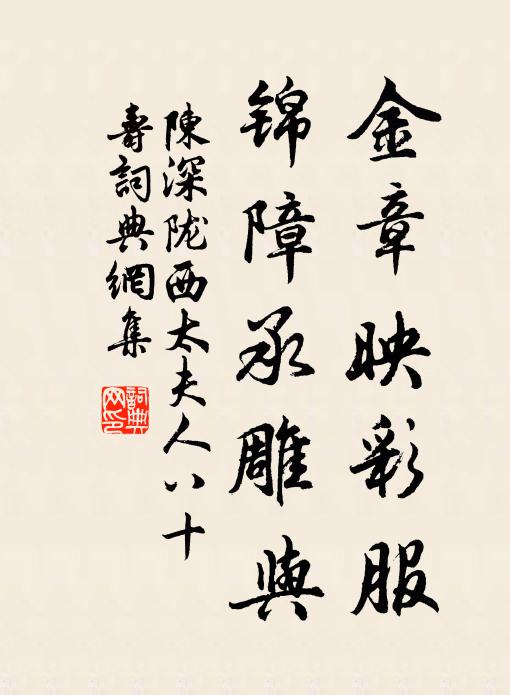 金章映彩服
锦障承雕與
陳深陇西太夫人八十
壽詞典網集
詞典
网印